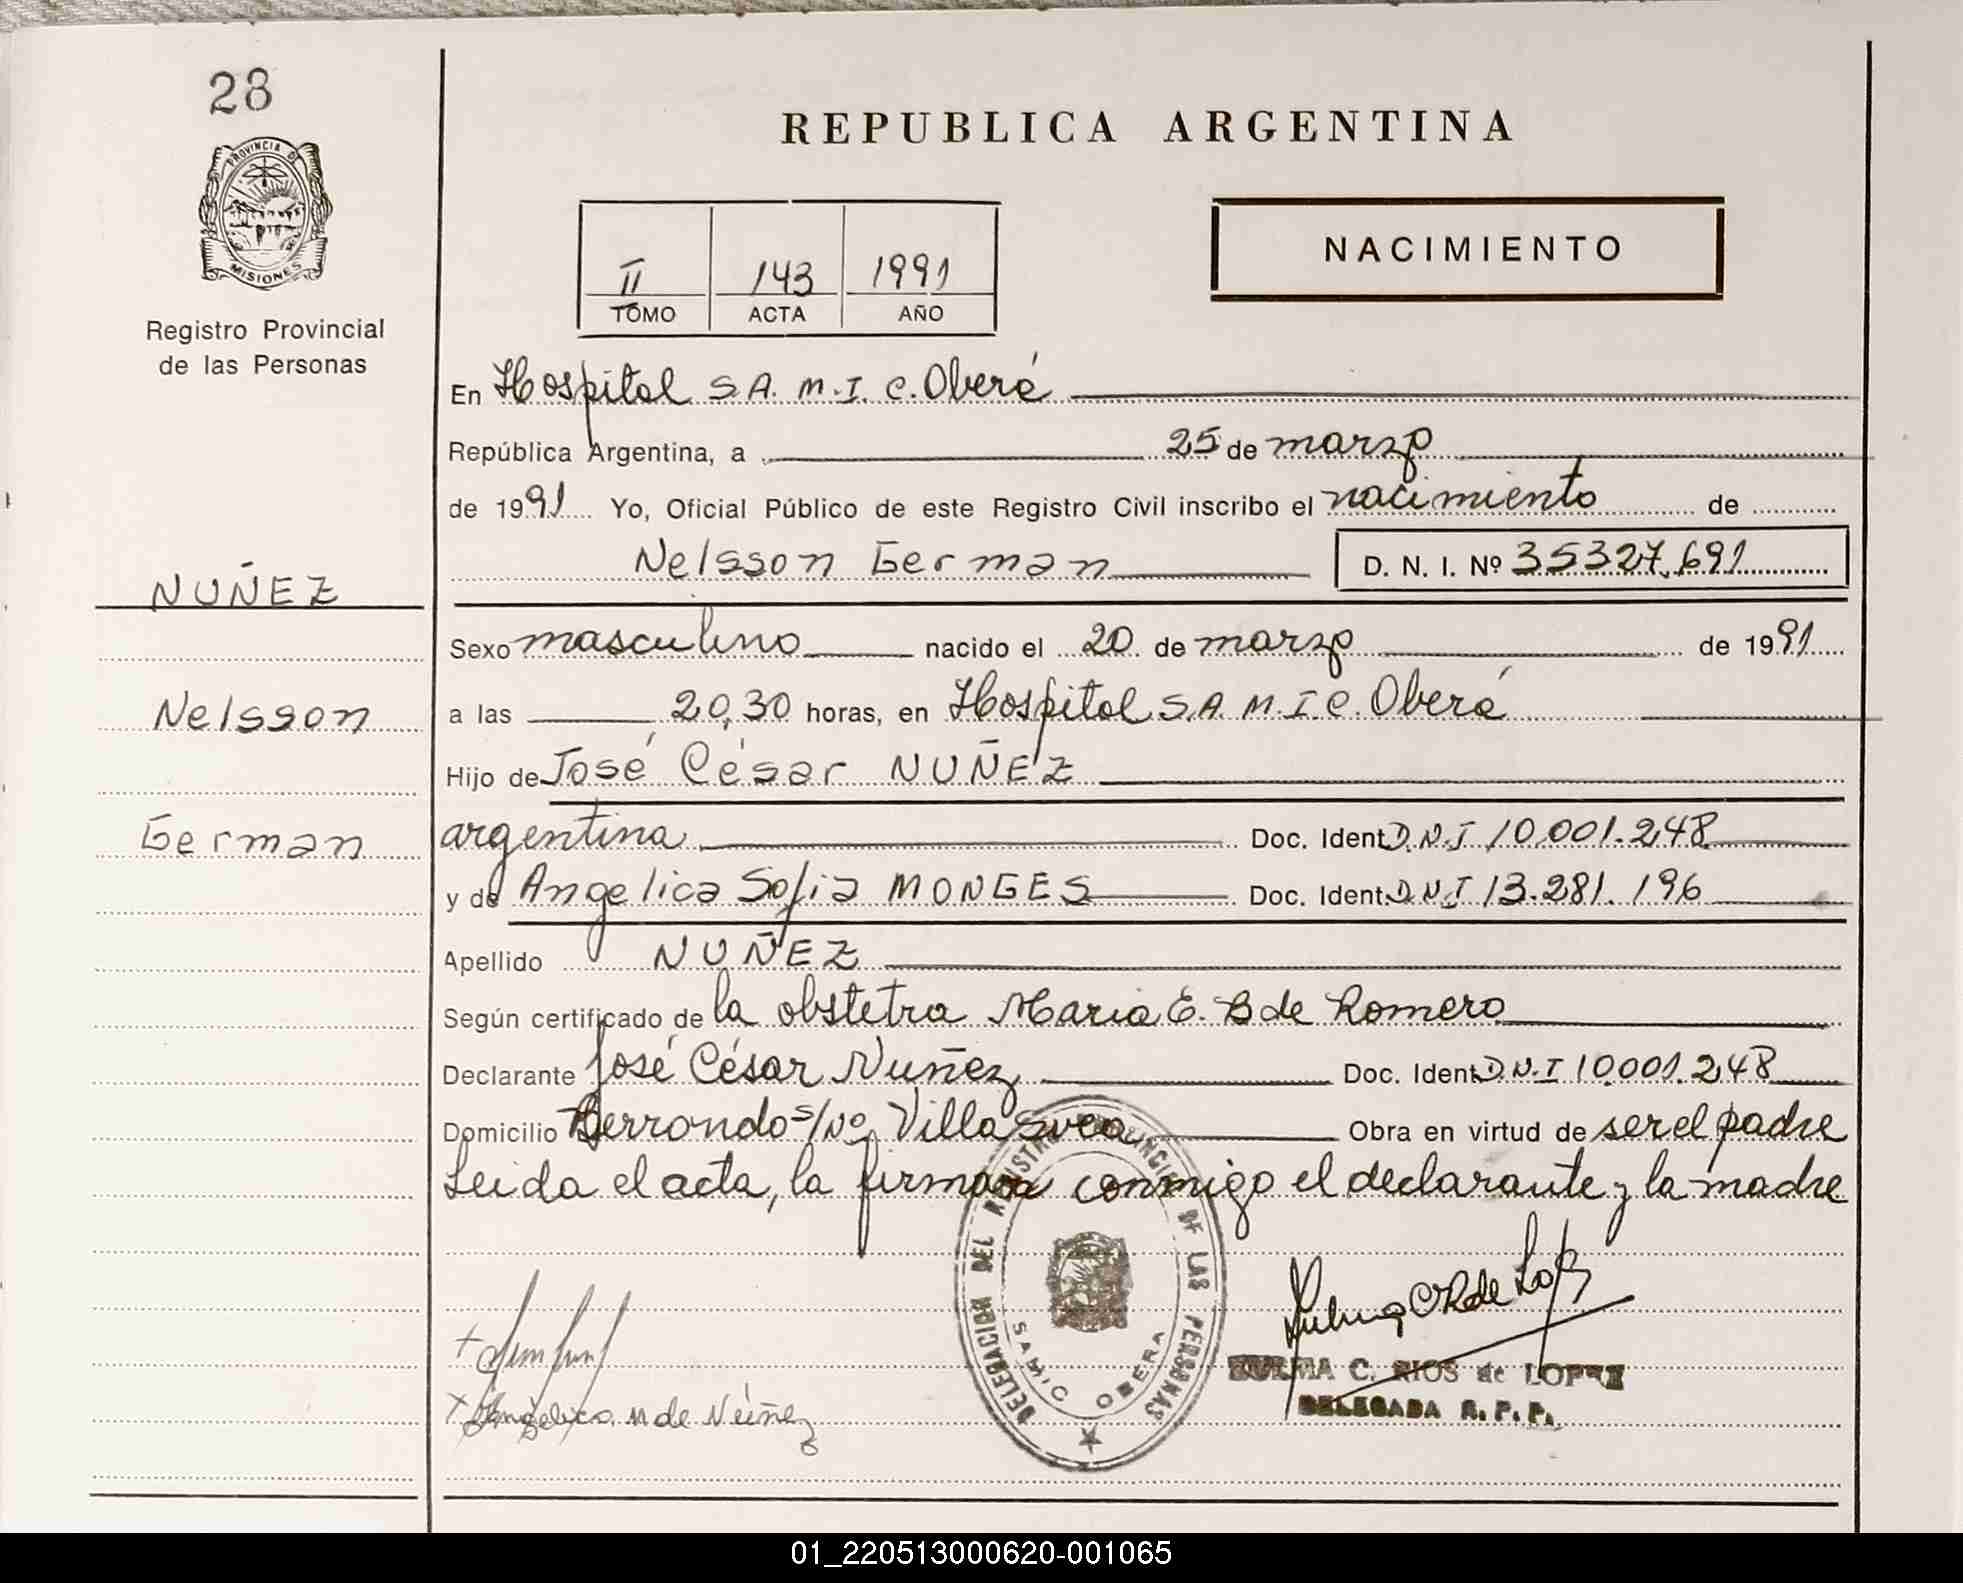 28
PROVINCIA DE
MISIONES
Registro Provincial
de las Personas
NUÑEZ
Nelsson
German
REPUBLICA ARGENTINA
II 143 1991
TOMO ACTA AÑO
NACIMIENTO
En Hospital S.A.M.I.C. Oberá
República Argentina, a 25 de marzo
de 1991 Yo, Oficial Público de este Registro Civil inscribo el nacimiento de
Nelsson German D. N. I. Nº 35327.691
Sexo masculino nacido el 20 de marzo de 1991
a las 20,30 horas, en Hospital S.A.M.I.C. Oberá
Hijo de José César NUÑEZ
argentina Doc. Ident. D.N.I 10.001.248
y de Angelica Sofia MONGES Doc. Ident. D.N.I 13.281.196
Apellido NUÑEZ
Según certificado de la obstetra Maria E. B de Romero
Declarante José César Nuñez Doc. Ident. D.N.I 10.001.248
Domicilio Berrondo s/Nº Villa Svea Obra en virtud de ser el padre
Leida el acta, la firman conmigo el declarante y la madre
DELEGACION DEL REGISTRO PROVINCIAL DE LAS PERSONAS
SAMIC OBERA
Angelica M de Núñez
ZULMA C. RIOS de LOPEZ
DELEGADA R.P.P.
01_220513000620-001065